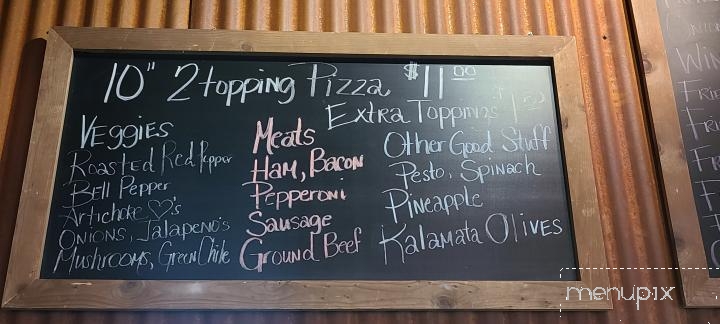 10" 2 topping Pizza $11.00
Extra Toppings $1.50
Veggies
Roasted Red Pepper
Bell Pepper
Artichoke ♡'s
Onions, Jalapeno's
Mushrooms, Green Chile
Meats
Ham, Bacon
Pepperoni
Sausage
Ground Beef
Other Good Stuff
Pesto, Spinach
Pineapple
Kalamata Olives
menupix